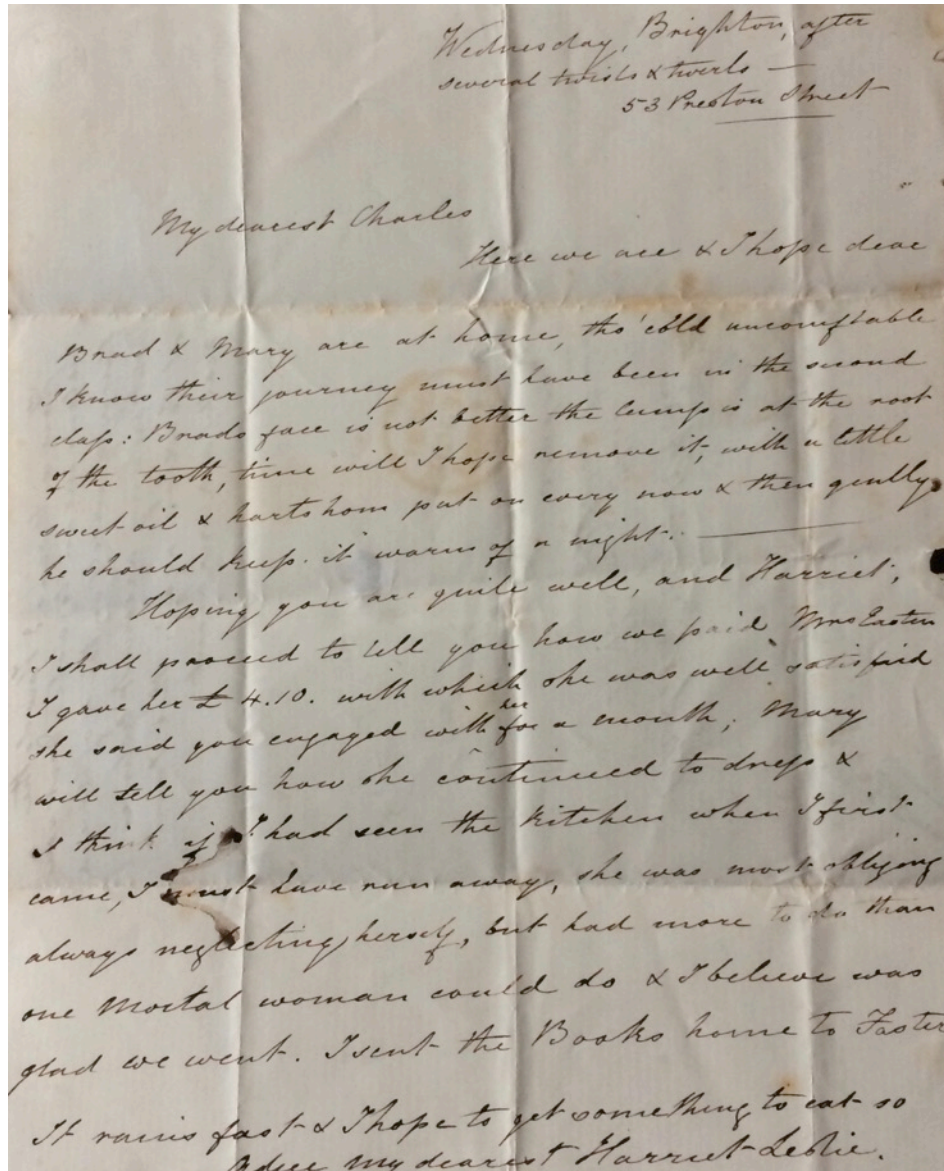 Wednesday, Brighton, after
several twists & twirls —
53 Preston Street
My dearest Charles
Here we are & I hope dear
Brad & Mary are at home, tho' cold uncomftable
I know their journey must have been in the second
class: Brads face is not better the lump is at the root
of the tooth, time will I hope remove it, with a little
sweet oil & hartshorn put on every now & then gently
he should keep it warm of a night. —
Hoping you are quite well, and Harriet,
I shall proceed to tell you how we paid Mrs Easten
I gave her £ 4.10. with which she was well satisfied
she said you engaged with her for a month; Mary
will tell you how she continued to dress &
I think if I had seen the kitchen when I first
came, I must have run away, she was most obliging
always neglecting herself, but had more to do than
one Mortal woman could do & I believe was
glad we went. I sent the Books home to Faster
It rains fast & I hope to get something to eat so
my dearest Harriet Leslie.